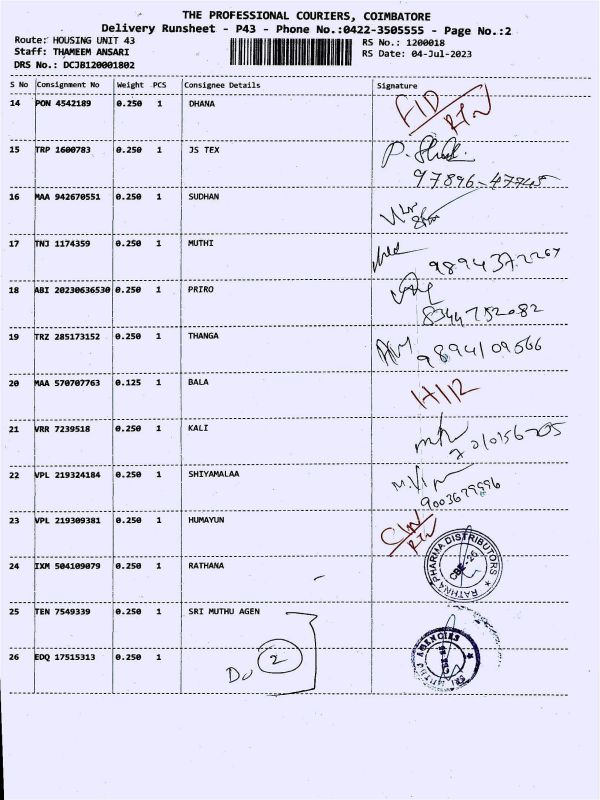 THE PROFESSIONAL COURIERS, COIMBATORE
Delivery Runsheet - P43 - Phone No.:0422-3505555 - Page No.:2
Route: HOUSING UNIT 43 RS No.: 1200018
Staff: THAMEEM ANSARI RS Date: 04-Jul-2023
DRS No.: DCJB120001802
S No Consignment No Weight PCS Consignee Details Signature
14 PON 4542189 0.250 1 DHANA
15 TRP 1600783 0.250 1 JS TEX
16 MAA 942670551 0.250 1 SUDHAN
17 TNJ 1174359 0.250 1 MUTHI
9894372267
18 ABI 20230636530 0.250 1 PRIRO
8344752082
19 TRZ 285173152 0.250 1 THANGA
9894109566
20 MAA 570707763 0.125 1 BALA
21 VRR 7239518 0.250 1 KALI
22 VPL 219324184 0.250 1 SHIYAMALAA
9003679996
23 VPL 219309381 0.250 1 HUMAYUN
24 IXM 504109079 0.250 1 RATHANA
RATHNA PHARMA DISTRIBUTORS
CBE-25
25 TEN 7549339 0.250 1 SRI MUTHU AGEN
26 EDQ 17515313 0.250 1
Do 2
SRI MUTHU AGENCIES